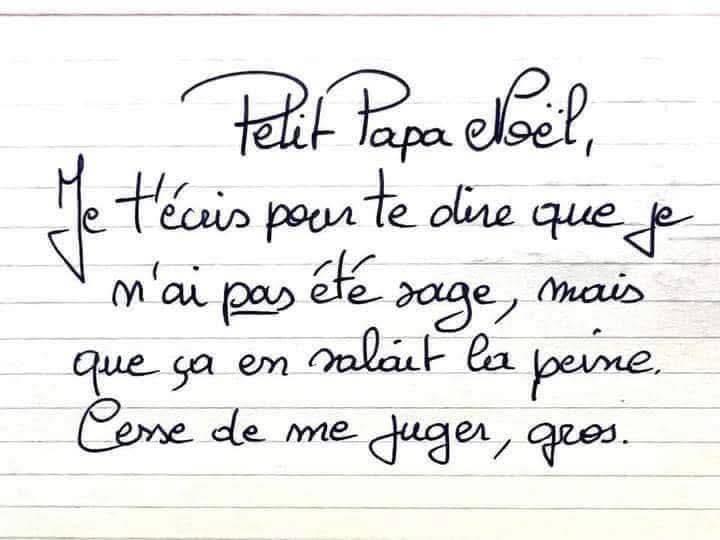 Petit Papa Noël,
Je t'écris pour te dire que je
n'ai pas été sage, mais
que ça en valait la peine.
Cesse de me juger, gros.